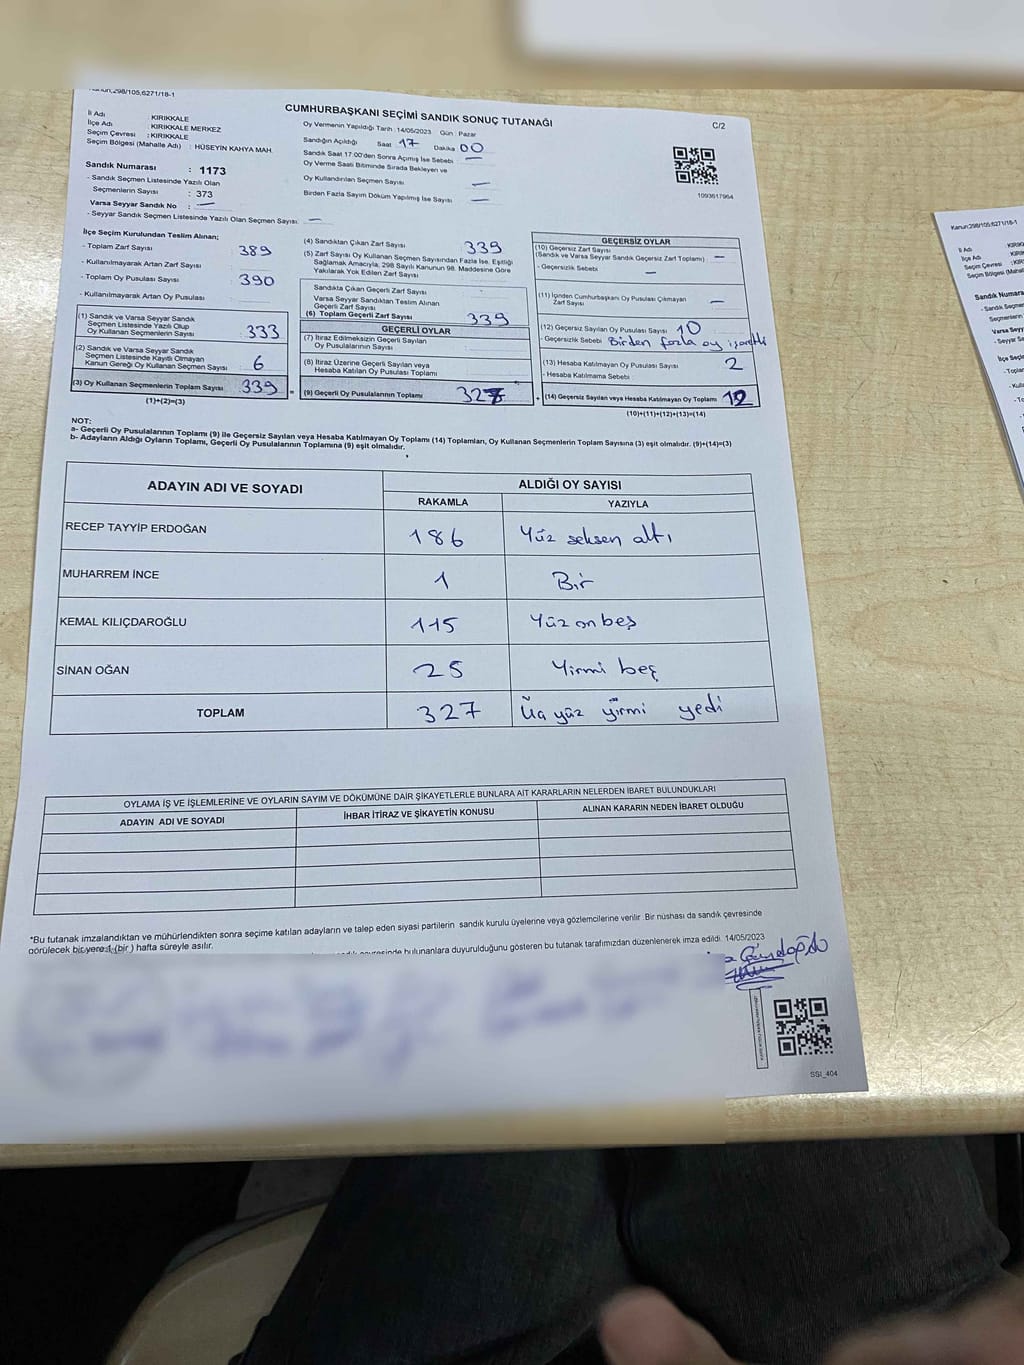 CUMHURBAŞKANI SEÇİMİ SANDIK SONUÇ TUTANAĞI
C/2
İl Adı : KIRIKKALE
İlçe Adı : KIRIKKALE MERKEZ
Seçim Çevresi : KIRIKKALE
Seçim Bölgesi (Mahalle Adı) : HÜSEYİN KAHYA MAH.
Oy Vermenin Yapıldığı Tarih : 14/05/2023 Gün : Pazar
Sandığın Açıldığı Saat 17 Dakika 00
Sandık Saat 17:00'den Sonra Açımış İse Sebebi —
Oy Verme Saati Bitiminde Sırada Bekleyen ve
Oy Kullandırılan Seçmen Sayısı —
Birden Fazla Sayım Döküm Yapılmış İse Sayısı —
1093617964
Sandık Numarası : 1173
- Sandık Seçmen Listesinde Yazılı Olan
Seçmenlerin Sayısı : 373
Varsa Seyyar Sandık No : —
- Seyyar Sandık Seçmen Listesinde Yazılı Olan Seçmen Sayısı: —
İlçe Seçim Kurulundan Teslim Alınan;
- Toplam Zarf Sayısı 389
- Kullanılmayarak Artan Zarf Sayısı
- Toplam Oy Pusulası Sayısı 390
- Kullanılmayarak Artan Oy Pusulası
(1) Sandık ve Varsa Seyyar Sandık
Seçmen Listesinde Yazılı Olup
Oy Kullanan Seçmenlerin Sayısı 333
(2) Sandık ve Varsa Seyyar Sandık
Seçmen Listesinde Kayıtlı Olmayan
Kanun Gereği Oy Kullanan Seçmen Sayısı 6
(3) Oy Kullanan Seçmenlerin Toplam Sayısı 339
(1)+(2)=(3)
(4) Sandıktan Çıkan Zarf Sayısı 339
(5) Zarf Sayısı Oy Kullanan Seçmen Sayısından Fazla İse, Eşitliği
Sağlamak Amacıyla, 298 Sayılı Kanunun 98. Maddesine Göre
Yakılarak Yok Edilen Zarf Sayısı
Sandıkta Çıkan Geçerli Zarf Sayısı
Varsa Seyyar Sandıktan Teslim Alınan
Geçerli Zarf Sayısı
(6) Toplam Geçerli Zarf Sayısı 339
GEÇERLİ OYLAR
(7) İtiraz Edilmeksizin Geçerli Sayılan
Oy Pusulalarının Sayısı
(8) İtiraz Üzerine Geçerli Sayılan veya
Hesaba Katılan Oy Pusulası Toplamı
(9) Geçerli Oy Pusulalarının Toplamı 327
GEÇERSİZ OYLAR
(10) Geçersiz Zarf Sayısı
(Sandık ve Varsa Seyyar Sandık Geçersiz Zarf Toplamı) —
- Geçersizlik Sebebi —
(11) İçinden Cumhurbaşkanı Oy Pusulası Çıkmayan
Zarf Sayısı —
(12) Geçersiz Sayılan Oy Pusulası Sayısı 10
- Geçersizlik Sebebi Birden fazla oy işaretli
(13) Hesaba Katılmayan Oy Pusulası Sayısı 2
- Hesaba Katılmama Sebebi
(14) Geçersiz Sayılan veya Hesaba Katılmayan Oy Toplamı 12
(10)+(11)+(12)+(13)=(14)
NOT:
a- Geçerli Oy Pusulalarının Toplamı (9) ile Geçersiz Sayılan veya Hesaba Katılmayan Oy Toplamı (14) Toplamları, Oy Kullanan Seçmenlerin Toplam Sayısına (3) eşit olmalıdır. (9)+(14)=(3)
b- Adayların Aldığı Oyların Toplamı, Geçerli Oy Pusulalarının Toplamına (9) eşit olmalıdır.
ADAYIN ADI VE SOYADI
ALDIĞI OY SAYISI
RAKAMLA YAZIYLA
RECEP TAYYİP ERDOĞAN 186 Yüz seksen altı
MUHARREM İNCE 1 Bir
KEMAL KILIÇDAROĞLU 115 Yüz on beş
SİNAN OĞAN 25 Yirmi beş
TOPLAM 327 Üç yüz yirmi yedi
OYLAMA İŞ VE İŞLEMLERİNE VE OYLARIN SAYIM VE DÖKÜMÜNE DAİR ŞİKAYETLERLE BUNLARA AİT KARARLARIN NELERDEN İBARET BULUNDUKLARI
ADAYIN ADI VE SOYADI İHBAR İTİRAZ VE ŞİKAYETİN KONUSU ALINAN KARARIN NEDEN İBARET OLDUĞU
*Bu tutanak imzalandıktan ve mühürlendikten sonra seçime katılan adayların ve talep eden siyasi partilerin sandık kurulu üyelerine veya gözlemcilerine verilir. Bir nüshası da sandık çevresinde
görülecek bir yere 1 (bir ) hafta süreyle asılır.
bulunanlara duyurulduğunu gösteren bu tutanak tarafımızdan düzenlenerek imza edildi. 14/05/2023
SSI_404